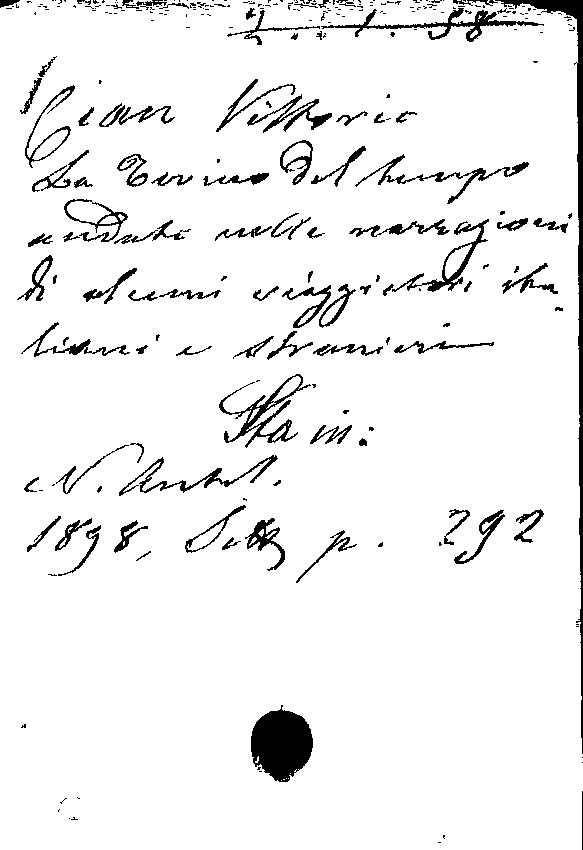 2. . 1. 58
Cian Vittorio
La Torino del tempo
andato nelle narrazioni
di alcuni viaggiatori ita-
liani e stranieri
Sta in:
N. Antol.
1898, Sett p. 292